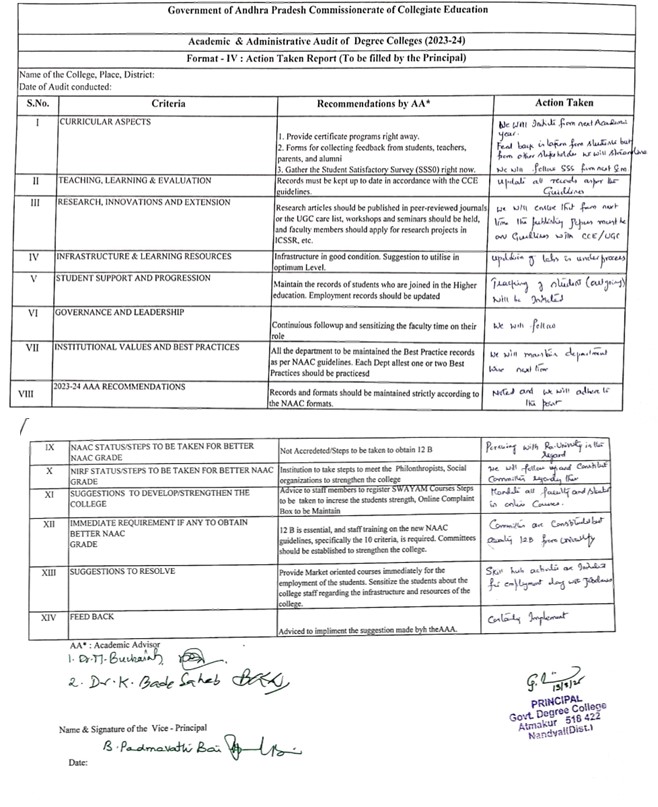 Government of Andhra Pradesh Commissionerate of Collegiate Education
Academic & Administrative Audit of Degree Colleges (2023-24)
Format - IV : Action Taken Report (To be filled by the Principal)
Name of the College, Place, District:
Date of Audit conducted:
S.No. Criteria Recommendations by AA* Action Taken
I CURRICULAR ASPECTS
1. Provide certificate programs right away.
2. Forms for collecting feedback from students, teachers,
parents, and alumni
3. Gather the Student Satisfactory Survey (SSS0) right now.
We will Initiate from next Academic
year.
Feed back is taken from students but
from other stakeholder we will streamline
We will follow SSS from next Sem
II TEACHING, LEARNING & EVALUATION
Records must be kept up to date in accordance with the CCE
guidelines.
Update all records as per the
Guidelines
III RESEARCH, INNOVATIONS AND EXTENSION
Research articles should be published in peer-reviewed journals
or the UGC care list, workshops and seminars should be held,
and faculty members should apply for research projects in
ICSSR, etc.
We will ensure that from next
time the publishing papers must be
on Guidelines with CCE/UGC
IV INFRASTRUCTURE & LEARNING RESOURCES
Infrastructure in good condition. Suggestion to utilise in
optimum Level.
updation of labs is under process
V STUDENT SUPPORT AND PROGRESSION
Maintain the records of students who are joined in the Higher
education. Employment records should be updated
of student (outgoing)
will be Initiated
VI GOVERNANCE AND LEADERSHIP
Continuous followup and sensitizing the faculty time on their
role
We will follow
VII INSTITUTIONAL VALUES AND BEST PRACTICES
All the department to be maintained the Best Practice records
as per NAAC guidelines. Each Dept allest one or two Best
Practices should be practicesd
We will maintain department
wise next time
VIII 2023-24 AAA RECOMMENDATIONS
Records and formats should be maintained strictly according to
the NAAC formats.
Noted and we will adhere to
the point
IX NAAC STATUS/STEPS TO BE TAKEN FOR BETTER
NAAC GRADE
Not Accredeted/Steps to be taken to obtain 12 B
with in this
regard
X NIRF STATUS/STEPS TO BE TAKEN FOR BETTER NAAC
GRADE
Institution to take steps to meet the Philonthropists, Social
organizations to strengthen the college
We will follow up and Constitute
Committee regarding this
XI SUGGESTIONS TO DEVELOP/STRENGTHEN THE
COLLEGE
Advice to staff members to register SWAYAM Courses Steps
to be taken to increse the students strength, Online Complaint
Box to be Maintain
all faculty and student
in online Courses.
XII IMMEDIATE REQUIREMENT IF ANY TO OBTAIN
BETTER NAAC
GRADE
12 B is essential, and staff training on the new NAAC
guidelines, specifically the 10 criteria, is required. Committees
should be established to strengthen the college.
Committees are Constituted but
awaiting 12B from University
XIII SUGGESTIONS TO RESOLVE
Provide Market oriented courses immediately for the
employment of the students. Sensitize the students about the
college staff regarding the infrastructure and resources of the
college.
Skill hub activities are Initiated
for employment along with
XIV FEED BACK
Adviced to impliment the suggestion made byh theAAA.
Certainly Implement
AA* : Academic Advisor
1. Dr. M.
2. Dr. K. Bade Saheb
PRINCIPAL
Govt. Degree College
Atmakur 518 422
Nandyal(Dist.)
Name & Signature of the Vice - Principal
B. Padmavathi Bai
Date: